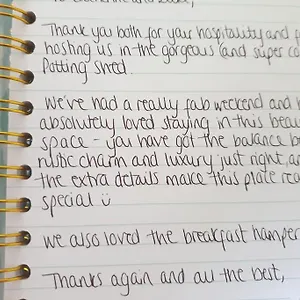 Thank you both for your hospitality and
hosting us in the gorgeous (and super
Potting Shed.
We've had a really fab weekend and
absolutely loved staying in this
space - you have got the balance
rustic charm and luxury just right,
the extra details make this plate
special ü
we also loved the breakfast hamper
Thanks again and all the best,